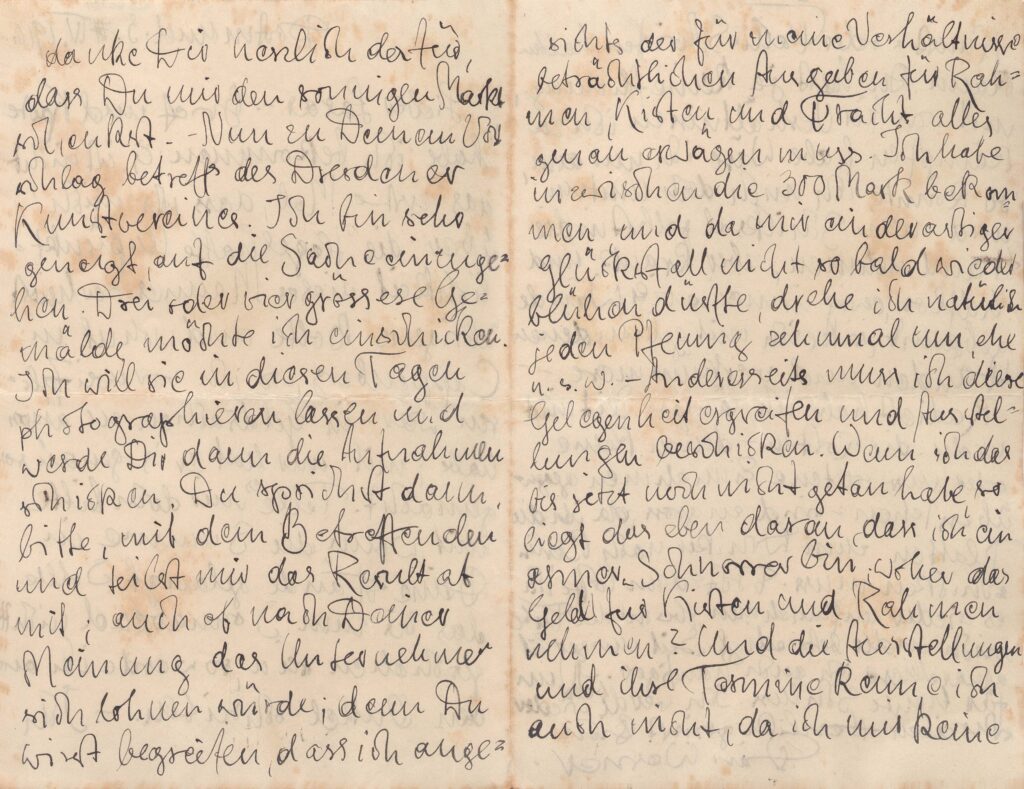 danke Dir herzlich dafür,
dass Du mir den sonnigen Markt
schenkst. – Nun zu Deinem Vor
schlag betreffs des Dresdener
Kunstvereines. Ich bin sehr
geneigt, auf die Sache einzuge=
hen. Drei oder vier grössere Ge=
mälde möchte ich einschicken.
Ich will sie in diesen Tagen
photographieren lassen und
werde Dir dann die Aufnahmen
schicken. Du sprichst dann,
bitte, mit dem Betreffenden
und teilst mir das Resultat
mit; auch ob nach Deiner
Meinung das Unternehmen
sich lohnen würde; denn Du
wirst begreifen, dass ich ange=
sichts der für meine Verhältnisse
beträchtlichen Ausgaben für Rah=
men, Kisten und Fracht alles
genau erwägen muss. Ich habe
inzwischen die 300 Mark bekom=
men und da mir ein derartiger
Glücksfall nicht so bald wieder
blühen dürfte, drehe ich natürlich
jeden Pfennig zehnmal um, ehe
u. s. w. – Anderseits muss ich diese
Gelegenheit ergreifen und Ausstel=
lungen beschicken. Wenn ich das
bis jetzt noch nicht getan habe, so
liegt das eben daran, dass ich ein
armer Schnorrer bin; woher das
Geld für Kisten und Rahmen
nehmen? Und die Ausstellungen
und ihre Termine kenne ich
auch nicht, da ich mir keine